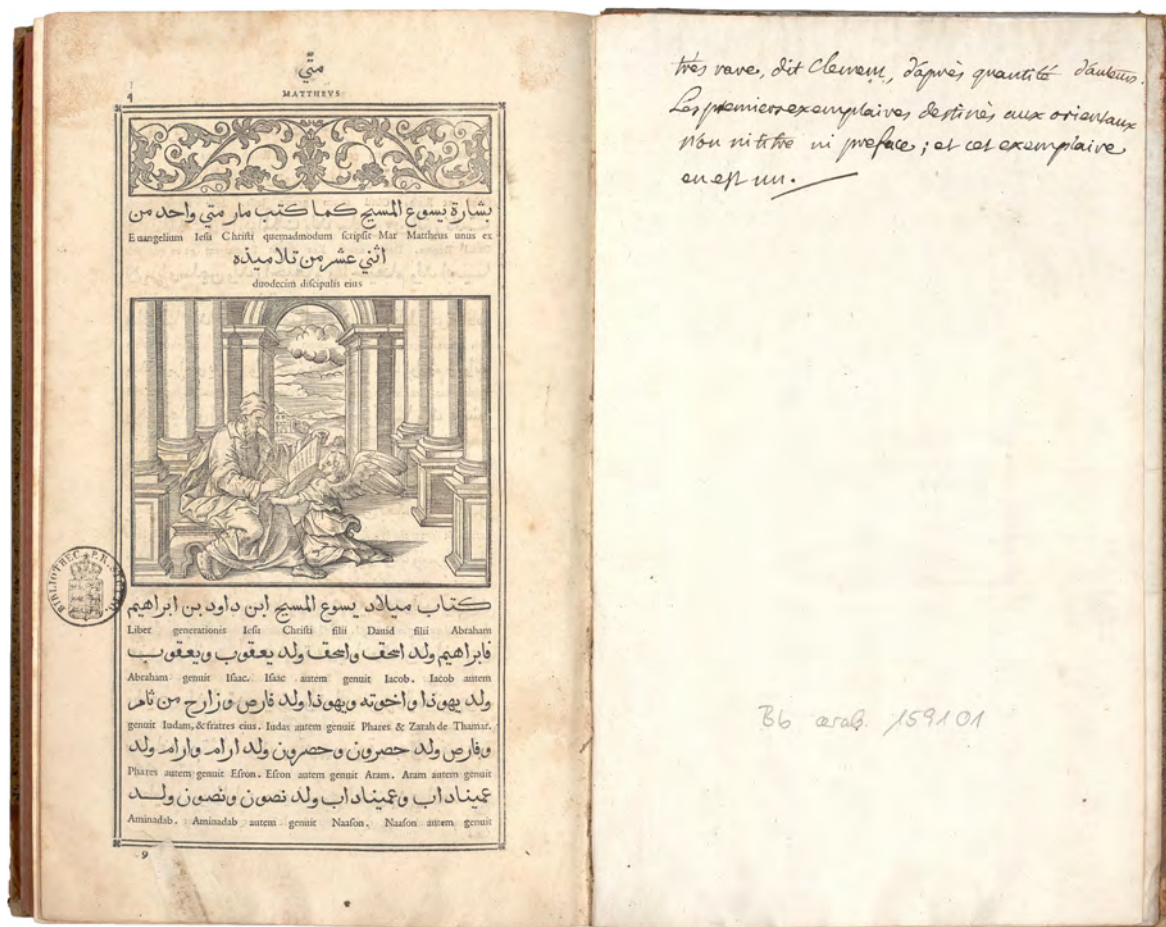 متّي
MATTHEVS
بشارة يسوع المسيح كما كتب مار متي واحد من
Euangelium Iesu Christi quemadmodum scripsit Mar Mattheus unus ex
اثني عشر من تلاميذه
duodecim discipulis eius
كتاب ميلاد يسوع المسيح ابن داود بن ابراهيم
Liber generationis Iesu Christi filii Dauid filii Abraham
فابراهيم ولد اسحق واسحق ولد يعقوب ويعقوب
Abraham genuit Isaac. Isaac autem genuit Iacob. Iacob autem
ولد يهوذا واخوته ويهوذا ولد فارص وزارح من ثامر
genuit Iudam, & fratres eius. Iudas autem genuit Phares & Zarah de Thamar.
وفارص ولد حصرون وحصرون ولد ارام وارام ولد
Phares autem genuit Esron. Esron autem genuit Aram. Aram autem genuit
عميناداب وعميناداب ولد نصون ونصون ولد
Aminadab. Aminadab autem genuit Naason. Naason autem genuit
9
BIBLIOTHEC. P.R.
très rare, dit Clement, d'après quantité d'auteurs.
Les premiers exemplaires destinés aux orientaux
n'on ni titre ni preface; et cet exemplaire
en est un.
Bb arab. 159101